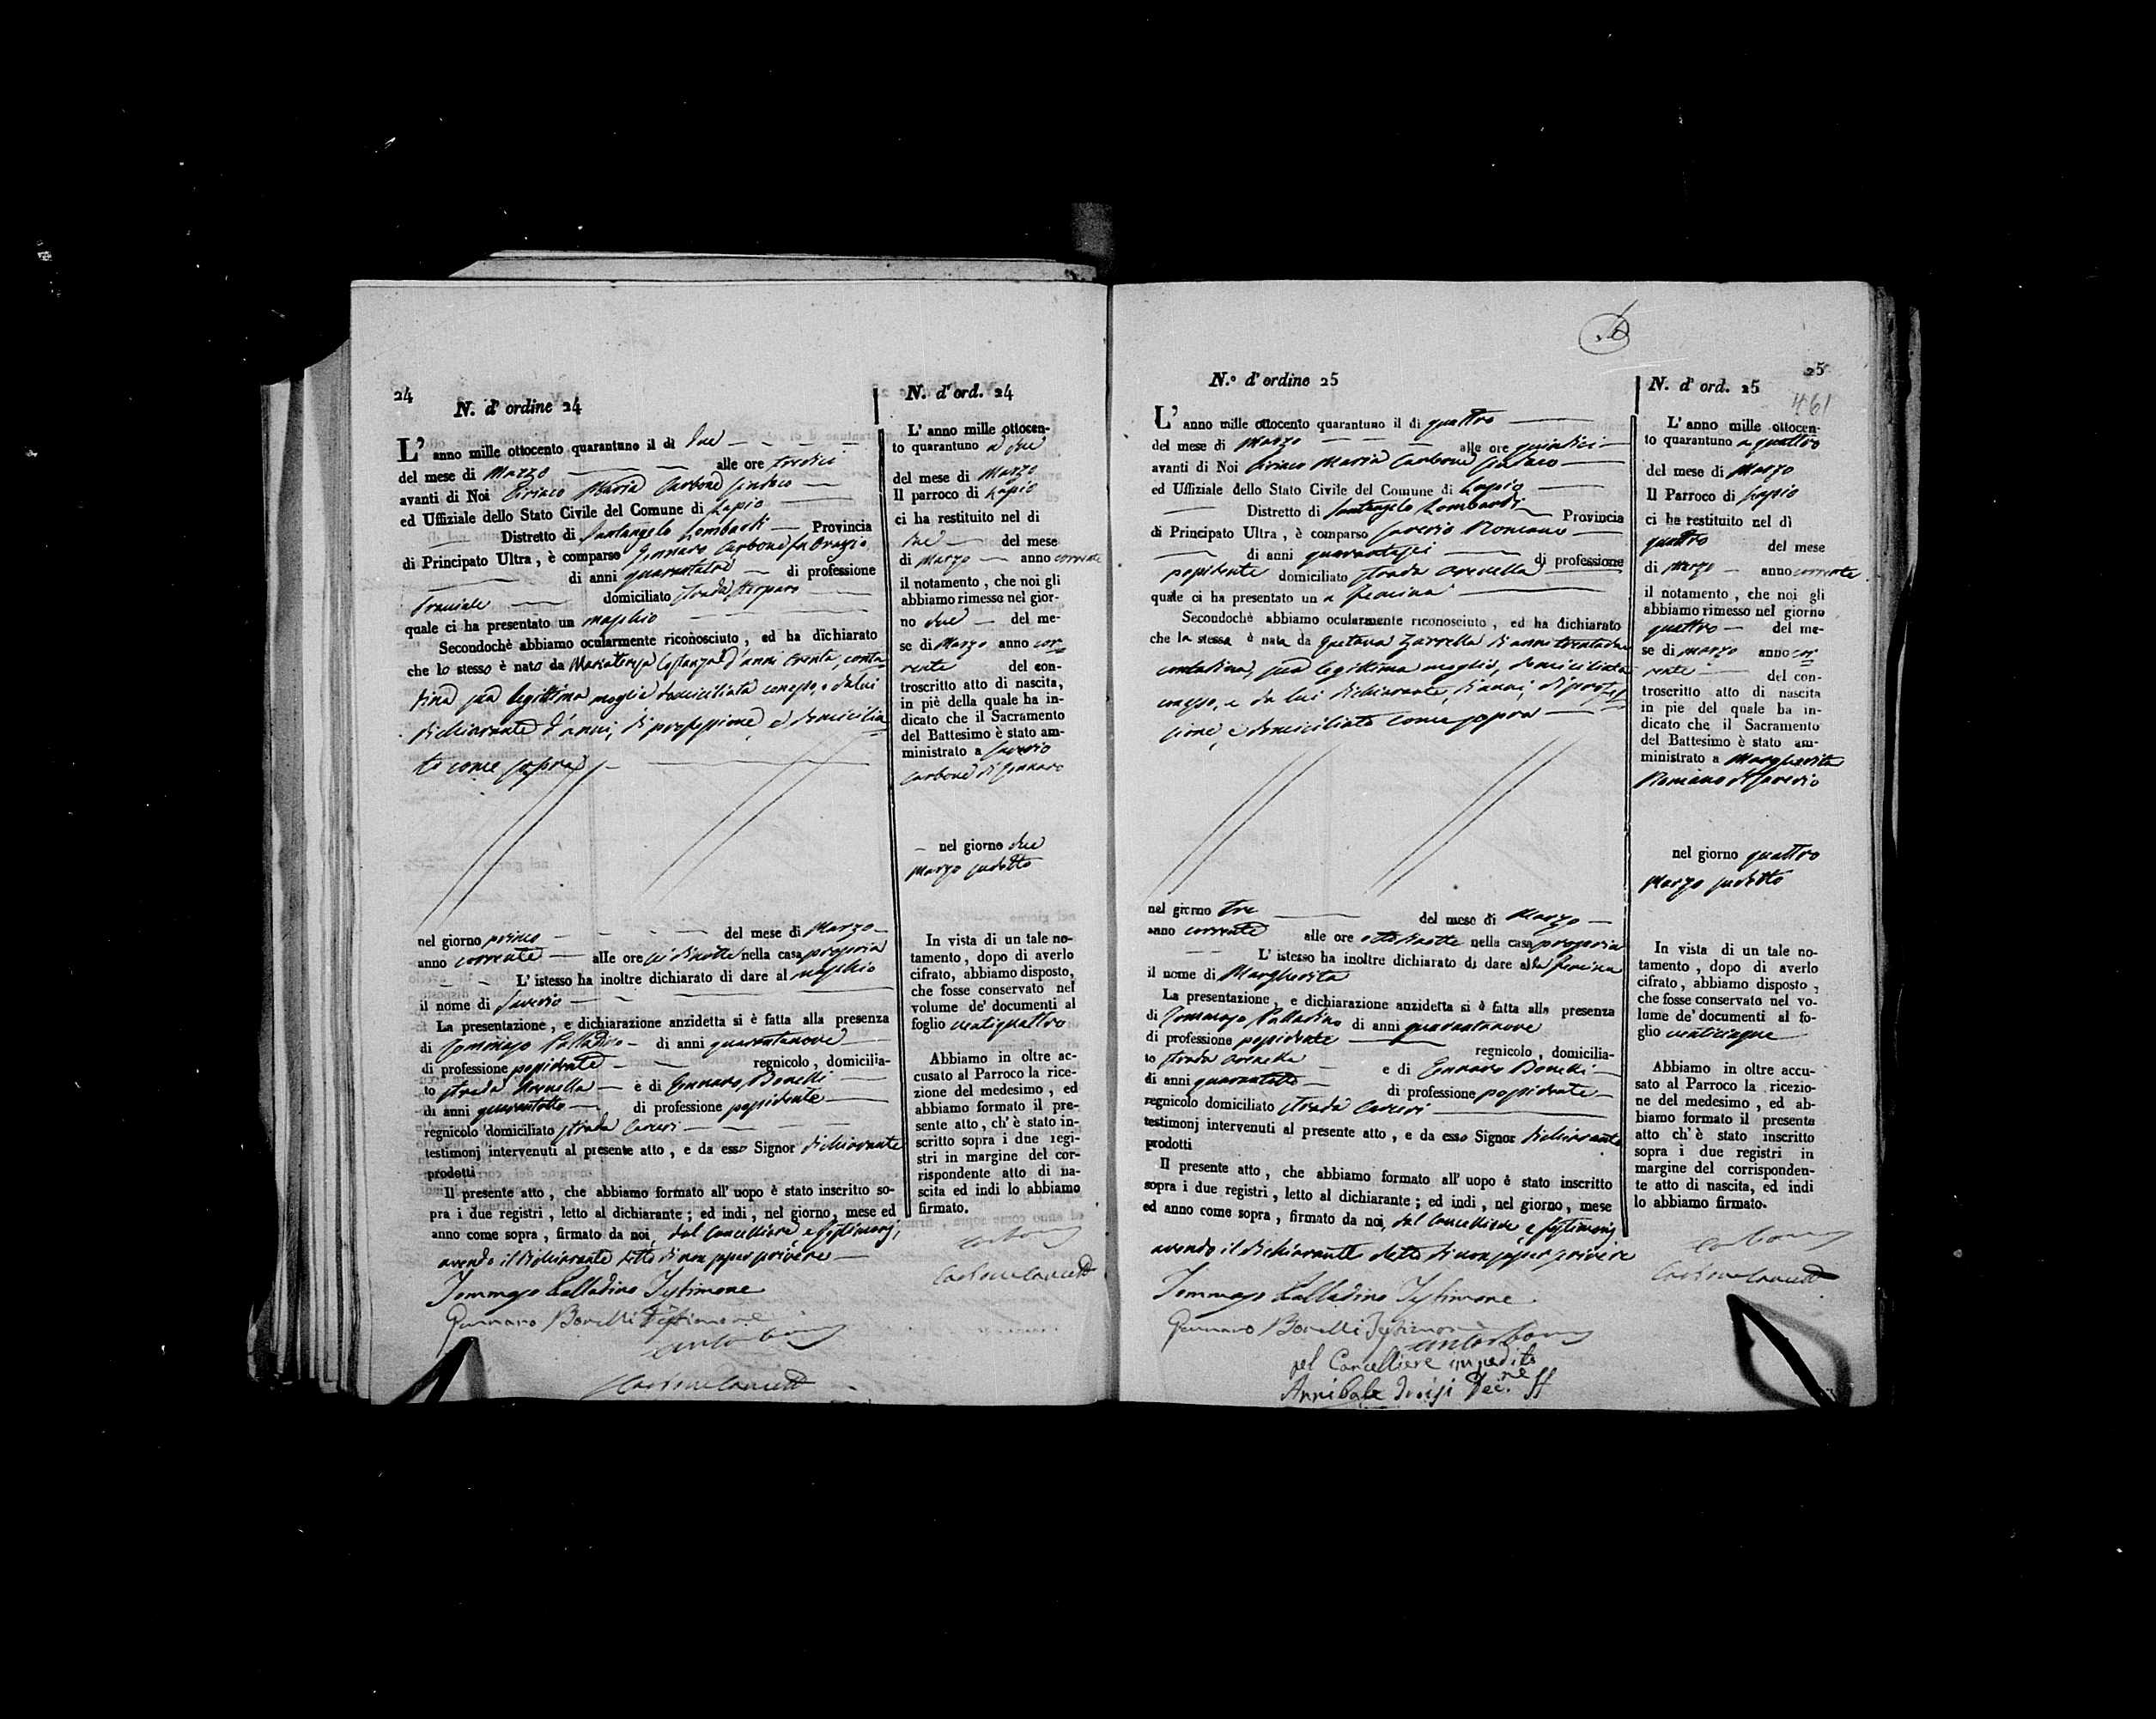 24
N. d' ordine 24
L' anno mille ottocento quarantuno il di due
del mese di Marzo alle ore tredici
avanti di Noi Ciriaco Maria Carbone Sindaco
ed Uffiziale dello Stato Civile del Comune di Lapio
Distretto di Santangelo Lombardi Provincia
di Principato Ultra, è comparso Gennaro Carbone fu Orazio
di anni quarantatre di professione
domiciliato strada
quale ci ha presentato un maschio
Secondochè abbiamo ocularmente riconosciuto, ed ha dichiarato
che lo stesso è nato da Mariateresa Costanza d'anni trenta, conta
dina sua legittima moglie domiciliata con esso, e da lui
dichiarante d'anni, di professione, e domicilia
to come sopra
nel giorno primo del mese di Marzo
anno corrente alle ore sei di notte nella casa propria
L' istesso ha inoltre dichiarato di dare al maschio
il nome di Saverio
La presentazione, e dichiarazione anzidetta si è fatta alla presenza
di Tommaso Palladino di anni quarantanove
di professione possidente regnicolo, domicilia-
to strada e di Gennaro Bonelli
di anni quarantotto di professione possidente
regnicolo domiciliato strada Carceri
testimonj intervenuti al presente atto, e da esso Signor dichiarante
prodotti
Il presente atto, che abbiamo formato all' uopo è stato inscritto so-
pra i due registri, letto al dichiarante; ed indi, nel giorno, mese ed
anno come sopra, firmato da noi, dal Cancelliere e testimonj,
avendo il dichiarante detto di non saper scrivere
Tommaso Palladino Testimone
Gennaro Bonelli Testimone
Carbone
Carbone Cancell
N. d' ord. 24
L' anno mille ottocen-
to quarantuno a due
del mese di Marzo
Il parroco di Lapio
ci ha restituito nel di
due del mese
di Marzo anno corrente
il notamento, che noi gli
abbiamo rimesso nel gior-
no due del me-
se di Marzo anno cor
rente del con-
troscritto atto di nascita,
in piè della quale ha in-
dicato che il Sacramento
del Battesimo è stato am-
ministrato a Saverio
Carbone di Gennaro
nel giorno due
Marzo sudetto
In vista di un tale no-
tamento, dopo di averlo
cifrato, abbiamo disposto,
che fosse conservato nel
volume de' documenti al
foglio ventiquattro
Abbiamo in oltre ac-
cusato al Parroco la rice-
zione del medesimo, ed
abbiamo formato il pre-
sente atto, ch' è stato in-
scritto sopra i due regi-
stri in margine del cor-
rispondente atto di na-
scita ed indi lo abbiamo
firmato.
Carbone
Carbone Cancell
25
461
N.º d' ordine 25
L' anno mille ottocento quarantuno il di quattro
del mese di Marzo alle ore quindici
avanti di Noi Ciriaco Maria Carbone Sindaco
ed Uffiziale dello Stato Civile del Comune di Lapio
Distretto di Santangelo Lombardi Provincia
di Principato Ultra, è comparso Saverio Romano
di anni quarantasei di professione
possidente domiciliato strada
quale ci ha presentato un a femina
Secondochè abbiamo ocularmente riconosciuto, ed ha dichiarato
che la stessa è nata da Gaetana Zarrella di anni trentadue
contadina, sua legittima moglie, domiciliata
con esso, e da lui dichiarante, di anni, di profes
sione, e domiciliato come sopra
nel giorno tre del mese di Marzo
anno corrente alle ore otto di notte nella casa propria
L' istesso ha inoltre dichiarato di dare alla femina
il nome di Margherita
La presentazione, e dichiarazione anzidetta si è fatta alla presenza
di Tommaso Palladino di anni quarantanove
di professione possidente regnicolo, domicilia-
to strada e di Gennaro Bonelli
di anni quarantotto di professione possidente
regnicolo domiciliato strada Carceri
testimonj intervenuti al presente atto, e da esso Signor dichiarante
prodotti
Il presente atto, che abbiamo formato all' uopo è stato inscritto
sopra i due registri, letto al dichiarante; ed indi, nel giorno, mese
ed anno come sopra, firmato da noi, dal Cancelliere e testimonj
avendo il dichiarante detto di non saper scrivere
Tommaso Palladino Testimone
Gennaro Bonelli Testimone
Carbone
pel Cancelliere impedito
Annibale
N. d' ord. 25
L' anno mille ottocen-
to quarantuno a quattro
del mese di Marzo
Il Parroco di Lapio
ci ha restituito nel dì
quattro del mese
di Marzo anno corrente
il notamento, che noi gli
abbiamo rimesso nel giorno
quattro del me-
se di marzo anno cor
rente del con-
troscritto atto di nascita
in pie del quale ha in-
dicato che il Sacramento
del Battesimo è stato am-
ministrato a Margherita
Romano di Saverio
nel giorno quattro
Marzo sudetto
In vista di un tale no-
tamento, dopo di averlo
cifrato, abbiamo disposto,
che fosse conservato nel vo-
lume de' documenti al fo-
glio venticinque
Abbiamo in oltre accu-
sato al Parroco la ricezio-
ne del medesimo, ed ab-
biamo formato il presente
atto ch' è stato inscritto
sopra i due registri in
margine del corrisponden-
te atto di nascita, ed indi
lo abbiamo firmato.
Carbone
Carbone Cancell